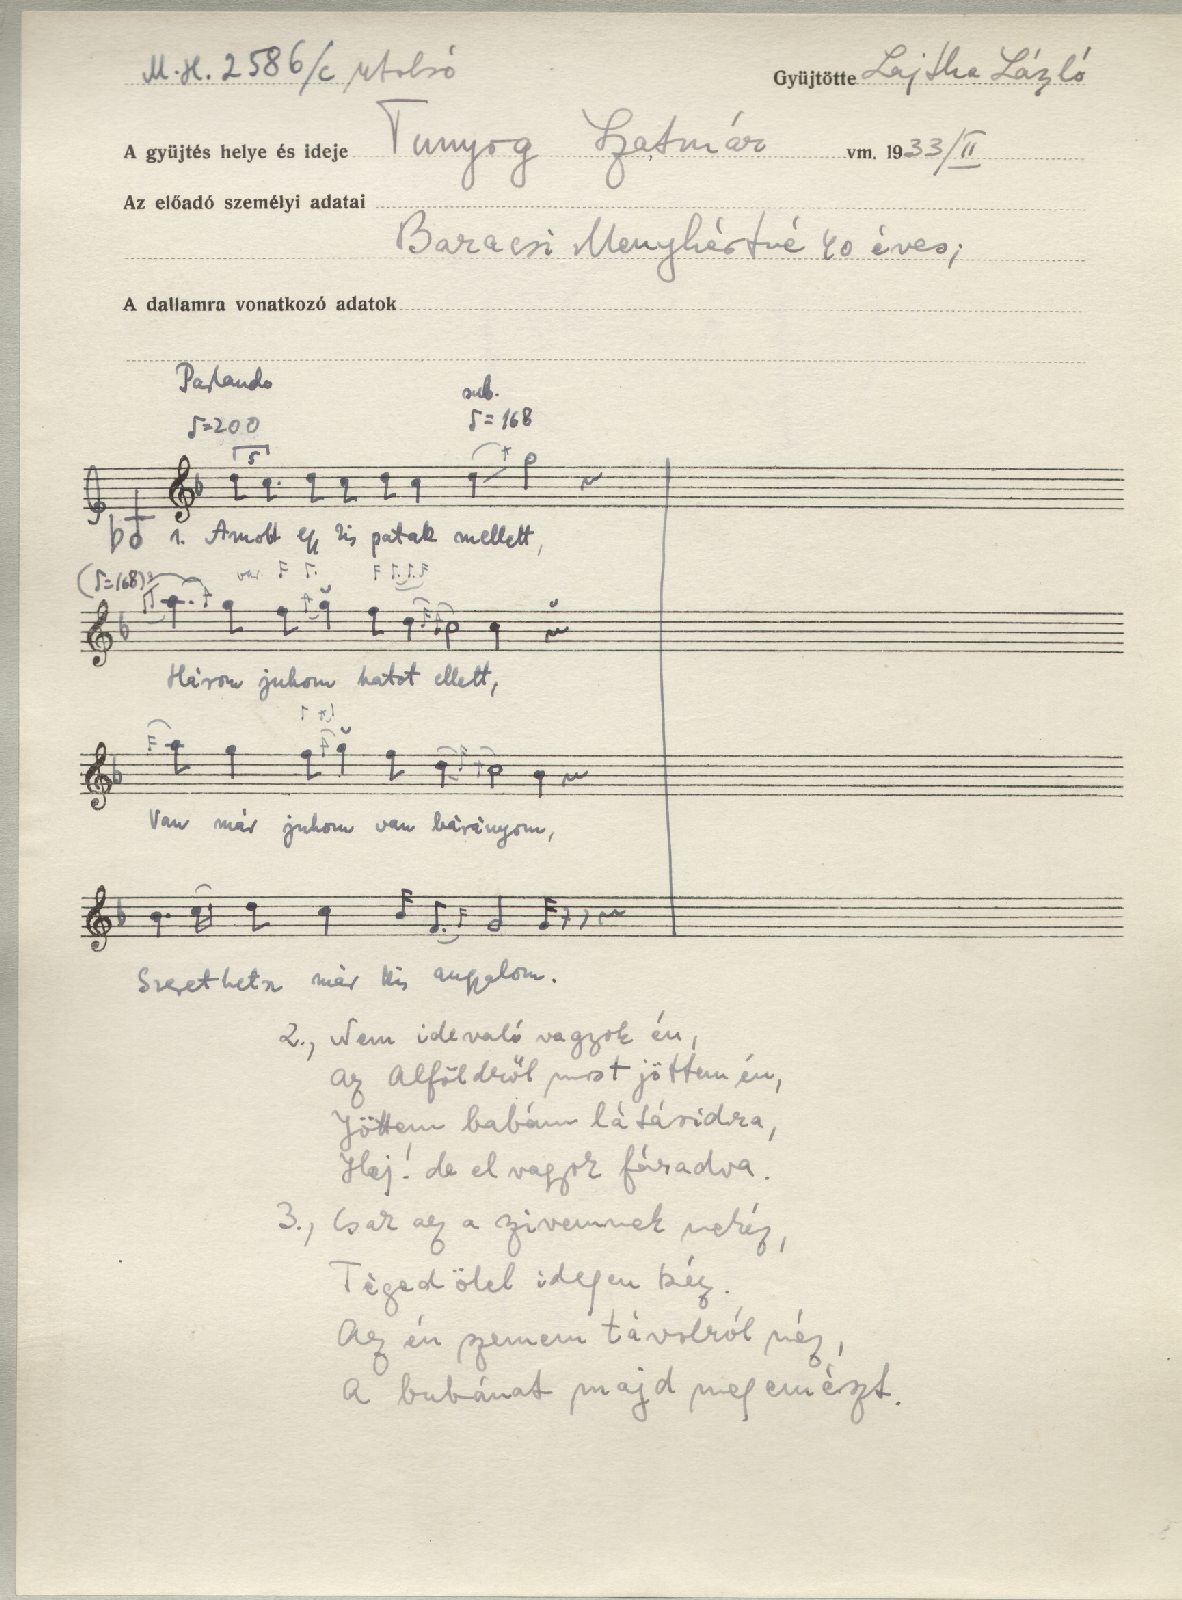 M.H. 2586/c utolsó
Gyüjtötte Lajtha László
A gyüjtés helye és ideje Tunyog Szatmár vm. 1933/II
Az előadó személyi adatai
Baracsi Menyhértné 40 éves;
A dallamra vonatkozó adatok
Parlando
♪=200
sub.
♪=168
5
1. Amott egy kis patak mellett,
(♪=168)
var.
Három juhom hatot ellett,
Van már juhom van bárányom,
Szerethetsz már kis angyalom.
2., Nem idevaló vagyok én,
Az Alföldről most jöttem én,
Jöttem babám látásidra,
Hej! de el vagyok fáradva.
3., Csak az a szivemnek nehéz,
Téged ölel idegen kéz.
Az én szemem távolról néz,
A bubánat majd megemészt.